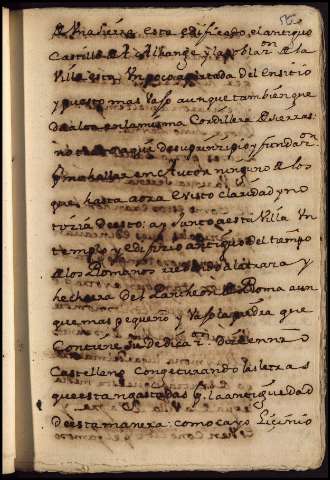 de una sierra esta edificado, el antiguo
Castillo de Alhange y la poblaon. de la
Villa esta Un poco apartada del en sitio
y puesto mas baso aunque tambien que
de alta en la misma Cordillera de sierras
no
y no hallar en Autor ninguno de los
que hasta aora e visto claridad y no
ticia de esto; ay junto a esta Villa Un
templo y edificio antiguo del tiempo
de los Romanos de la traza y
hechura Del Pancheon de Roma aun
que mas pequeño y baso la piedra que
Contiene su Dedicaon. Dice en n̄ro
Castellano Congeturando las letras
que estan gastadas pr. la antiguedad
De esta manera: como cayo Liçinio